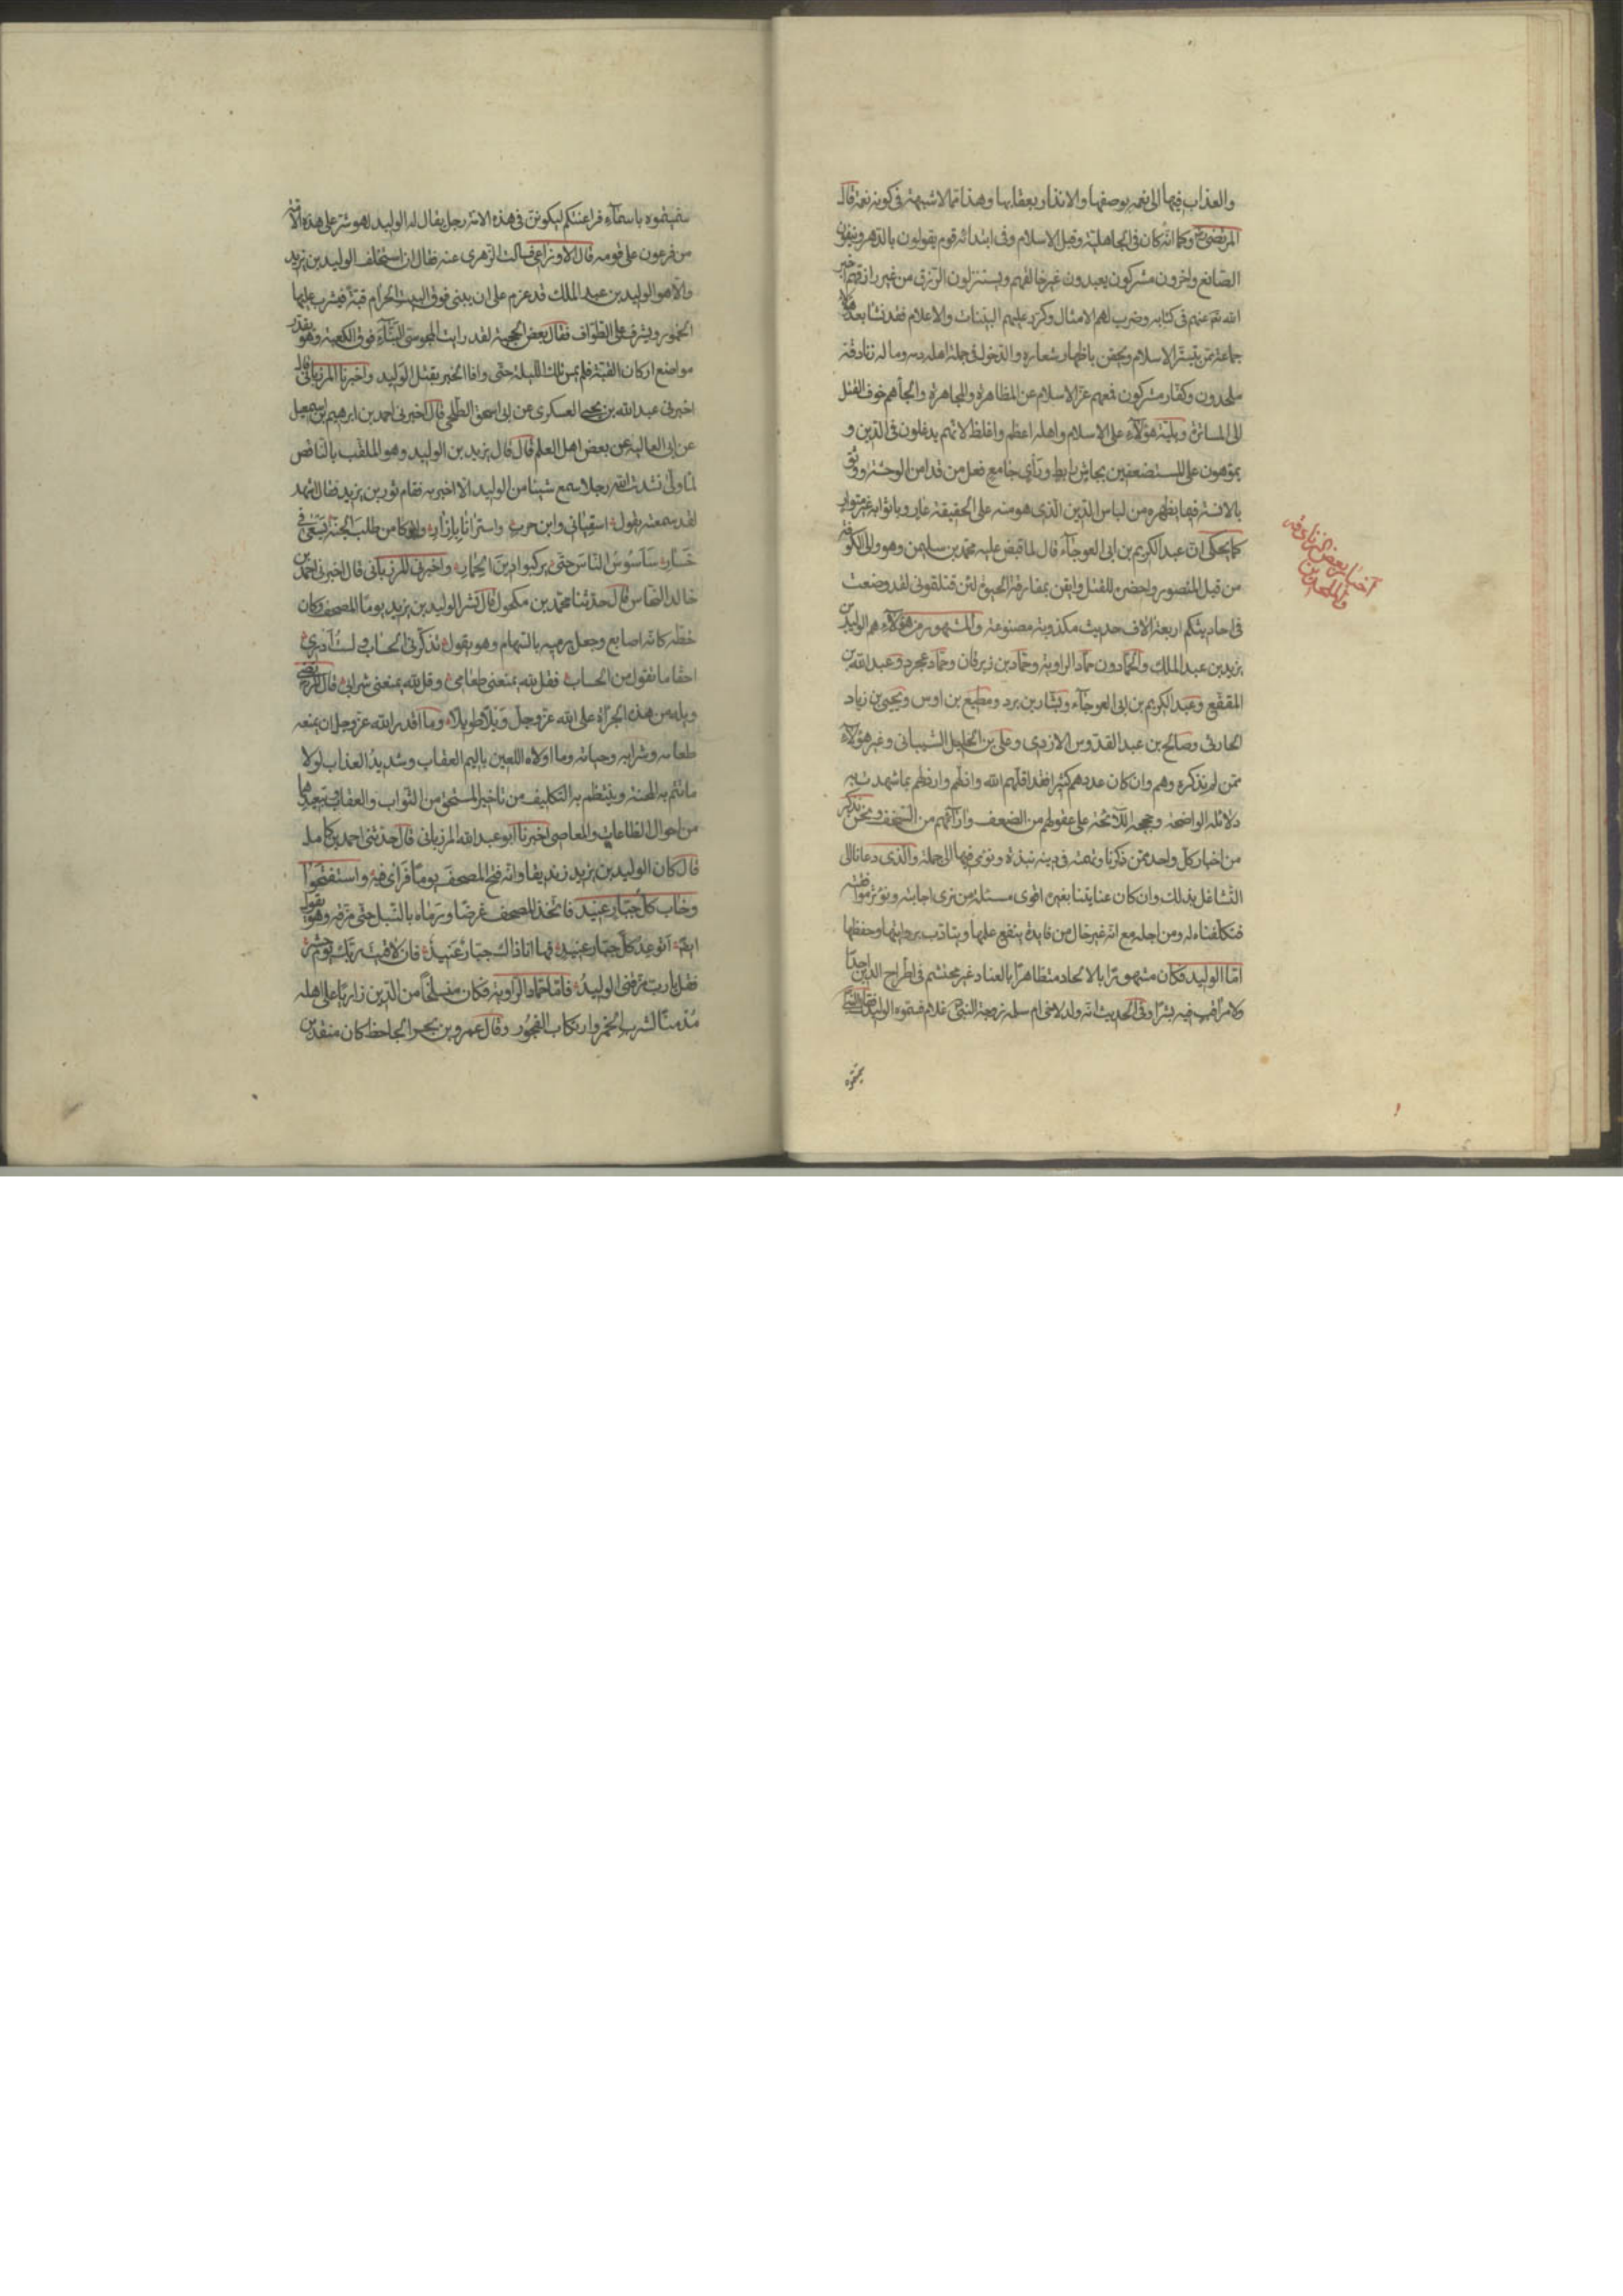 والعذاب فيها الى نعمه بوصفها والانذار بعقابها وهذا مما لا شبهة فى كونه نعمة قال
المرتضى رض وكما انه كان فى الجاهلية وقبل الاسلام وفى ابتدائه قوم يقولون بالدهر وينفون
الصانع واخرون مشركون يعبدون غير خالقهم ويستنزلون الرزق من غير رازقهم اخبر
الله تعم عنهم فى كتابه وضرب لهم الامثال وكرر عليهم البينات والاعلام فقد نشا بعد هؤلاء
جماعة ممن يتستر بالاسلام ويحقن باظهار شعاره والدخول فى جملة اهله دمه وماله زنادقة
ملحدون وكفار مشركون فمنعهم عز الاسلام عن المظاهرة والمجاهرة والجأهم خوف القتل
الى المساترة وبلية هؤلاء على الاسلام واهله اعظم واغلظ لانهم يدغلون فى الدين و
يموهون على المستضعفين بجاش رابط وراى جامع فعل من قد امن الوحشة ووثق
بالانسة فيما يظهره من لباس الدين الذى هو منه على الحقيقة عار وباثوابه غير متوار
كما يحكى ان عبد الكريم بن ابى العوجاء قال لما قبض عليه محمد بن سليمن وهو والى الكوفة
من قبل المنصور واحضر للقتل وايقن بمفارقة الحيوة لئن قتلتمونى لقد وضعت
فى احاديثكم اربعة الاف حديث مكذوبة مصنوعة والمشهور من هؤلاء هم الوليد بن
يزيد بن عبد الملك والحمادون حماد الراوية وحماد بن زبرقان وحماد عجرد وعبد الله بن
المقفع وعبد الكريم بن ابى العوجاء وبشار بن برد ومطيع بن اوس ويحيى بن زياد
الحارثى وصالح بن عبد القدوس الازدى وعلى بن الخليل الشيبانى وغير هؤلاء
ممن لم نذكره وهم وان كان عددهم كثيرا فقد اقلهم الله واذلهم وارذلهم بما شهدت به
دلائله الواضحة وحججه اللائحة على عقولهم من الضعف وارائهم من السخف ونحن نذكر
من اخبار كل واحد ممن ذكرنا وتهمته فى دينه نبذة ونومى فيها الى جملة والذى دعانا الى
التشاغل بذلك وان كان عنايتنا بغيره اقوى مسئلة من نرى اجابته ونوثر موافقته
فتكلفناه له ومن اجله مع انه غير خال من فايدة ينتفع عليها ويتادب بروايتها وحفظها
اما الوليد فكان مشهورا بالالحاد متظاهرا بالعناد غير محتشم فى اطراح الدين احدا
ولا مراقب فيه بشرا وفى الحديث انه ولد لاخى ام سلمة زوجة النبى غلام فسموه الوليد فقال النبى
سميتموه
اخبار بعض الزنادقة
والملحدين
سميتموه باسماء فراعنتكم ليكونن فى هذه الامة رجل يقال له الوليد لهو شر على هذه الامة
من فرعون على قومه قال الاوزاعى فسالت الزهرى عنه فقال ان استخلف الوليد بن يزيد
والا هو الوليد بن عبد الملك قد عزم على ان يبنى فوق البيت الحرام قبة فيشرب عليها
الخمور ويشرف على الطواف فقال بعض الحجبة لقد رايت المجوسى البناء فوق الكعبة وهو يقدر
مواضع اركان القبة فلم يمس تلك الليلة حتى وافا الخبر بقتل الوليد واخبرنا المرزبانى قال
اخبرنى عبد الله بن يحيى العسكرى عن ابى اسحق الطلحى قال اخبرنى احمد بن ابرهيم بن اسمعيل
عن ابى العالية عن بعض اهل العلم قال قال يزيد بن الوليد وهو الملقب بالناقص
لما ولى نشدت الله رجلا سمع شيئا من الوليد الا اخبر به فقام ثور بن يزيد فقال اشهد
لقد سمعته يقول اسقيانى وابن حرب واسترانا بازار واتركا من طلب الجنة يسعى فى
خسار ساسوس الناس حتى يركبوا دين الحمار واخبرنى المرزبانى قال اخبرنى احمد بن
خالد النحاس قال حدثنا محمد بن مكحول قال نشر الوليد بن يزيد يوما المصحف وكان
خطه كانه اصابع وجعل يرميه بالسهام وهو يقول تذكرنى الحساب ولست ادرى
احقا ما تقول من الحساب فقل لله يمنعنى طعامى وقل لله يمنعنى شرابى قال المرتضى
ويله من هذه الجراة على الله عز وجل ويلا طويلا وما اقدر الله عز وجل ان يمنعه
طعامه وشرابه وحياته وما اولاه اللعين باليم العقاب وشديد العذاب لولا
ما تتم به المحنة وينتظم به التكليف من تاخير المستحق من الثواب والعقاب وتبعيدهما
من احوال الطاعات والمعاصى اخبرنا ابو عبد الله المرزبانى قال حدثنى احمد بن كامل
قال كان الوليد بن يزيد زنديقا وانه فتح المصحف يوما فراى فيه واستفتحوا
وخاب كل جبار عنيد فاتخذ المصحف غرضا ورماه بالنبل حتى مزقه وهو يقول
اتوعد كل جبار عنيد فها انا ذاك جبار عنيد فان لاقيت ربك يوم حشر
فقل يا رب مزقنى الوليد فاما حماد الراوية فكان منسلخا من الدين زاريا على اهله
مدمنا لشرب الخمر وارتكاب الفجور وقال عمرو بن بحر الجاحظ كان منقذ بن